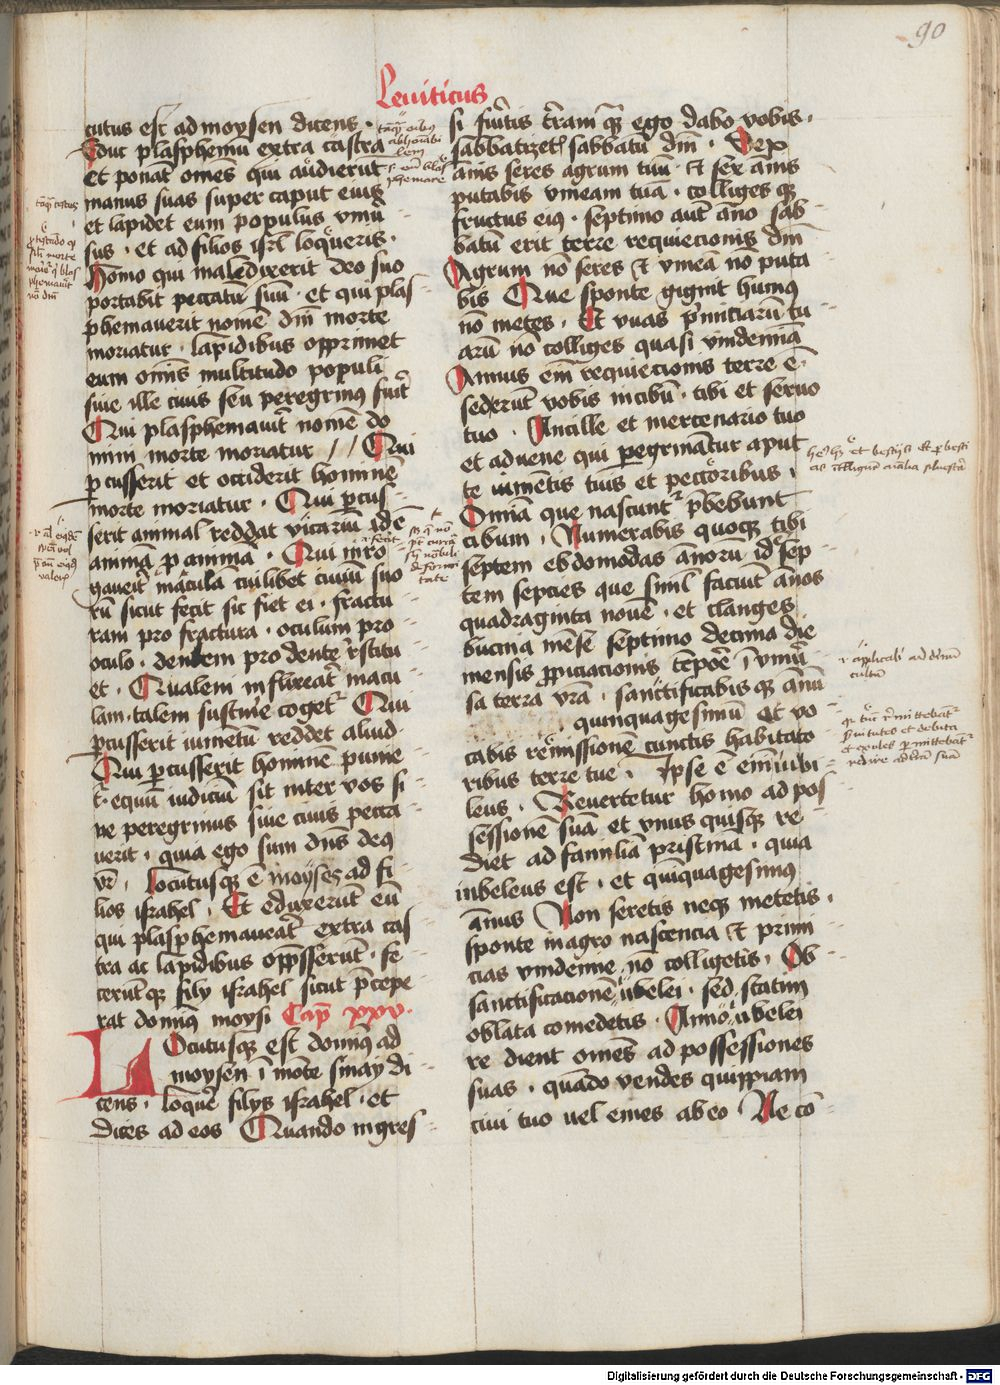 90
Leuiticus
cutus est ad moysen dicens ·
Educ plasphemū extra castra
et ponāt om̄es qui audierut
manus suas super caput eius
et lapidet eum populus vniū
sus · et ad filios isrl̄ loq̄ueris ·
Homo qui maledixerit deo suo
portabit peccatū suū · et qui plas
phemauerit nomē dn̄i morte
moriatur · lapidibus opprimet
eum om̄is multitudo populi
siue ille ciuis seu peregrinus fuit̄
Qui plasphemauit̄ nomē do
mini morte moriatur // Qui
ꝑcusserit et occiderit hominē
morte moriatur · Qui ꝑcus
serit animal reddat vicariū id ē
animā pro animā · Qui irro
gauerit maculā cuilibet ciuiū suo
rū sicut fecit sic fiet ei · fractu
ram pro fractura · oculum pro
oculo · dentem pro dente rēstitu
et · Qualem inflixeat̄ macu
lam · talem sustinē coget᷑ Qui
ꝑcusserit iumetū reddet aliud
Qui ꝑcusserit hominē punie
t᷑ · equū iudiciū sit inter vos si
ue peregrinus siue ciuis pecca
uerit · quia ego sum dn̄s deq
vr̄ · locutusq̄ ē moyses ad fi
lios israhel · Et eduxerūt eū
qui plasphemaueat̄ extra cas
tra ac lapidibus opp̄sserūt · fe
cerūtq̄ filij israhel sicut p̄cepe
rat domiꝯ moysi Cap̄ xxv ·
Locutusq̄ est domiꝯ ad
moysen ī mōte sinay di
cens · loquē filijs israhel · et
dices ad eos Quando ingres
si fūitis t̄ram q̄ ego dabo vobis ·
sabbatizet̄ sabbatū dn̄i · Sex
ān̄is seres agrum tuū · et sex ān̄is
putabis vineam tuā · colliges q̄
fructus eiꝯ · septimo aut̄ ān̄o sab
batū erit terre requiecionis dn̄i
Agrum nō seres et vineā nō puta
bis Que sponte gignit humꝯ
nō metes · Et vuas p̄mitiarū tu
arū nō colliges quasi vindemiā
Annus em̄ requiecionis terre ē ·
sederūt vobis in cibū · tibi et seruo
tuo · Ancille et mercenario tuo
et aduene qui peregrinātur aput
te iumētis tuis et pecoribus ·
Omīa que nascunt᷑ p̄bebunt
cibum · Numerabis quoq̄ tibi
septem ebdomodas anorū · id ē sep
tem septies que siml̄ faciūt ān̄os
quadraginta nouē · et clanges
bucina mēse septimo decima die
mensis ꝓpiciacionis tēpoē ī vniū
sa terra vr̄ā · sanctificabis q̄ ānū
quinquagesimū et vo
cabis remissionē cunctis habitato
ribus terre tue · Ipse ē em̄ iubi
leus · Reuertetur homo ad pos
sessionē suā et vnus quisq̄ re
diet ad familiā pristinā · quia
iubeleus est · et quiquagesimꝯ
ān̄us Non seretis neq̄ metetis ·
sponte in agro nascencia et primi
cias vindemie nō colligetis · Ob
sanctificacionē iubelei · sed statim
oblata comedetis · Anno iubelei
re dient om̄es ad possessiones
suas · quādo vendes quippiam
ciui tuo uel emes ab eo · Ne cō
Digitalisierung gefördert durch die Deutsche Forschungsgemeinschaft - DFG